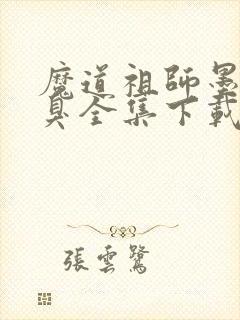 魔道祖師墨
臭全集下載
張雲鷺